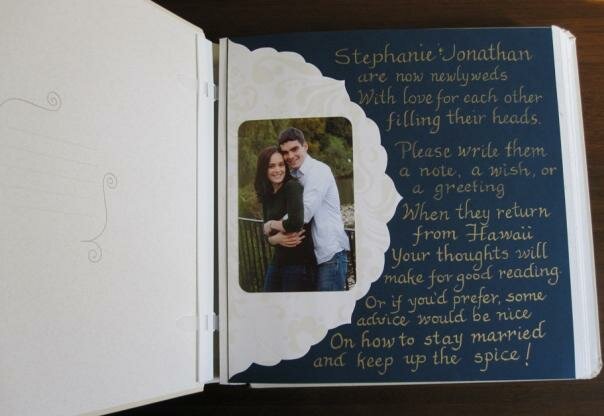 Stephanie & Jonathan
are now newlyweds
With love for each other
filling their heads.
Please write them
a note, a wish, or
a greeting
When they return
from Hawaii
Your thoughts will
make for good reading.
Or if you'd prefer, some
advice would be nice
On how to stay married
and keep up the spice!